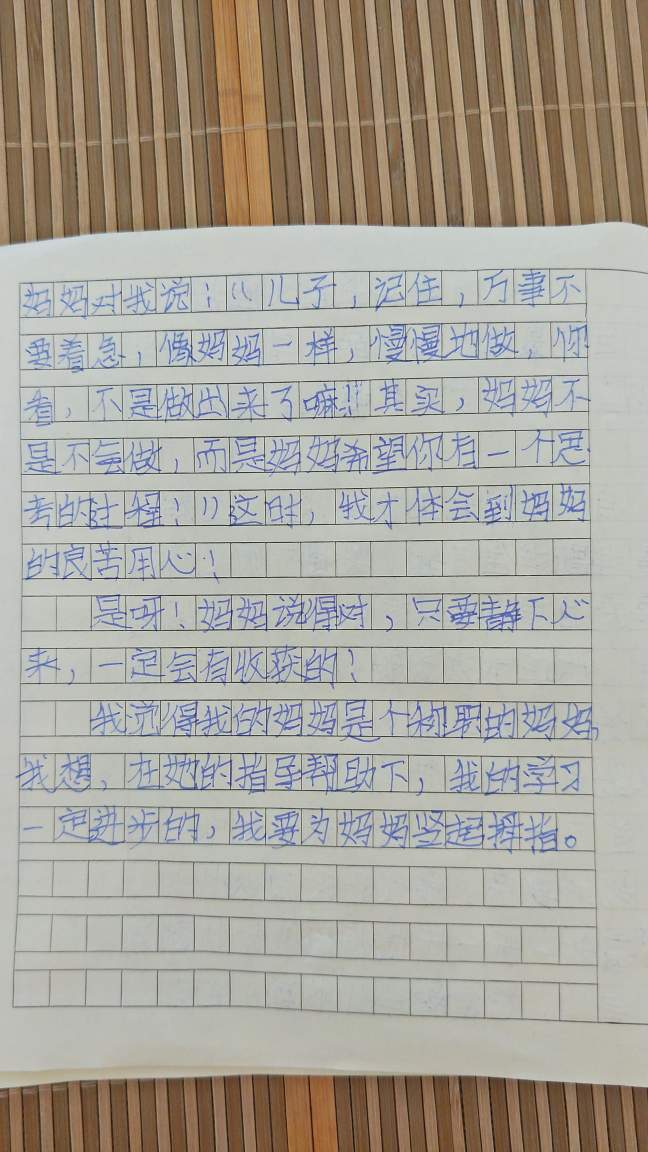 妈妈对我说：“儿子，记住，万事不
要着急，像妈妈一样，慢慢地做，你
看，不是做出来了嘛！”其实，妈妈不
是不会做，而是妈妈希望你有一个思
考的过程！”这时，我才体会到妈妈
的良苦用心！
是呀！妈妈说得对，只要静下心
来，一定会有收获的！
我觉得我的妈妈是个称职的妈妈，
我想，在她的指导帮助下，我的学习
一定进步的，我要为妈妈竖起拇指。